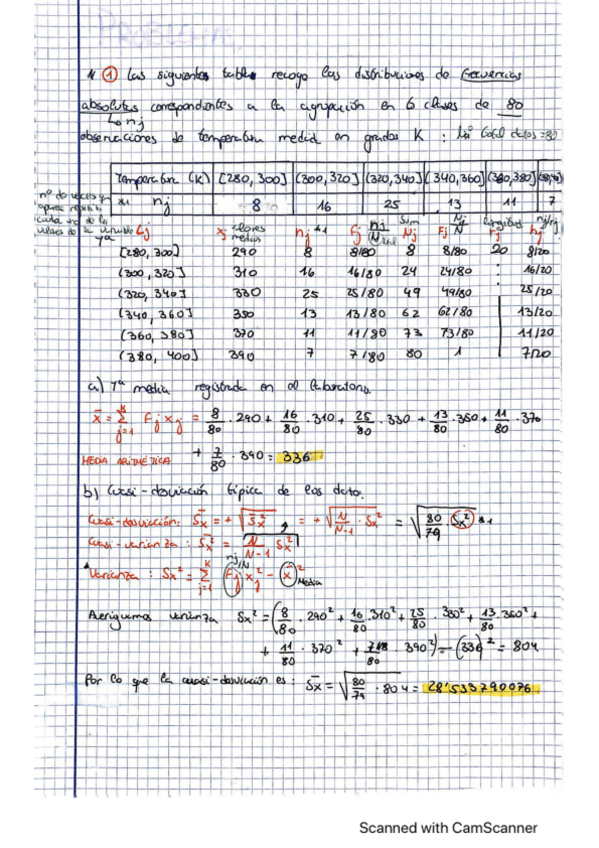 PROBLEMA
N ① Las siguientes tabla recoge las distribuciones de frecuencias
absolutas correspondientes a la agrupación en 6 clases de 80
↳ nj
observaciones de temperatura media en grados K : Nº total datos = 80
Temperatura (K) [280, 300] (300, 320] (320, 340] (340, 360] (360, 380] (380, 400]
nj 8 16 25 13 11 7
nº de veces q aparece
cada uno de los
valores de la variable
Tª Lj xj valores medios nj Fj nj/N Nj Sum Fj Nj/N longitud hj
[280, 300] 290 8 8/80 8 8/80 20 8/20
(300, 320] 310 16 16/80 24 24/80 : 16/20
(320, 340] 330 25 25/80 49 49/80 25/20
(340, 360] 350 13 13/80 62 62/80 13/20
(360, 380] 370 11 11/80 73 73/80 11/20
(380, 400] 390 7 7/80 80 1 7/20
a) Tª media registrada en el laboratorio.
x̄ = Σ fj xj = 8/80 · 290 + 16/80 · 310 + 25/80 · 330 + 13/80 · 350 + 11/80 · 370
MEDIA ARITMÉTICA + 7/80 · 390 = 336
b) Cuasi-desviación típica de los dato.
Cuasi-desviación: S̄x = + √S̄x² = + √(N/N-1 · Sx²) = √(80/79 · Sx²)
Cuasi-varianza : S̄x² = N/N-1 Sx²
nj/N
Varianza : Sx² = Σ Fj xj² - x̄² Media
Averiguamos varianza Sx² = (8/80 · 290² + 16/80 · 310² + 25/80 · 330² + 13/80 · 350² +
+ 11/80 · 370² + 7/80 · 390²) - (336)² = 804
Por lo que la cuasi-desviación es : S̄x = √(80/79 · 804) = 28'533790076
Scanned with CamScanner